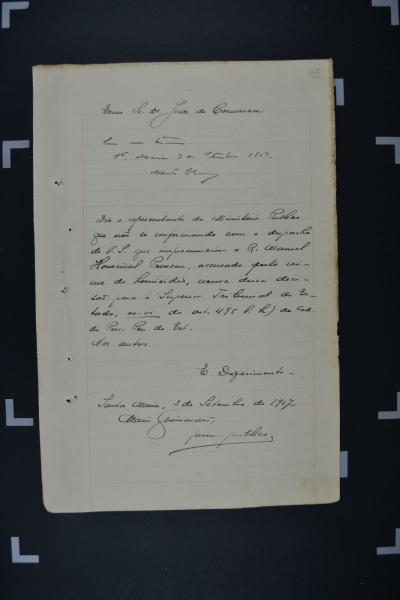 Exmo. Sr. Dr. Juiz da Comarca
Sta. Maria 3 de Setembro 1917.
Diz o representante do Ministerio Publico
que não se conformando com o despacho
de V. S. que impronunciou o R. Manoel
accusado pelo cri-
me de homicidio, recorre dessa deci-
são para o Superior Tribunal do Es-
tado, ex-vi do art. 495 l. h) do Cod.
do Proc. Pen. do Est.
Nos autos
E. Deferimento.
Santa Maria, 3 de Setembro de 1917
prom. publico